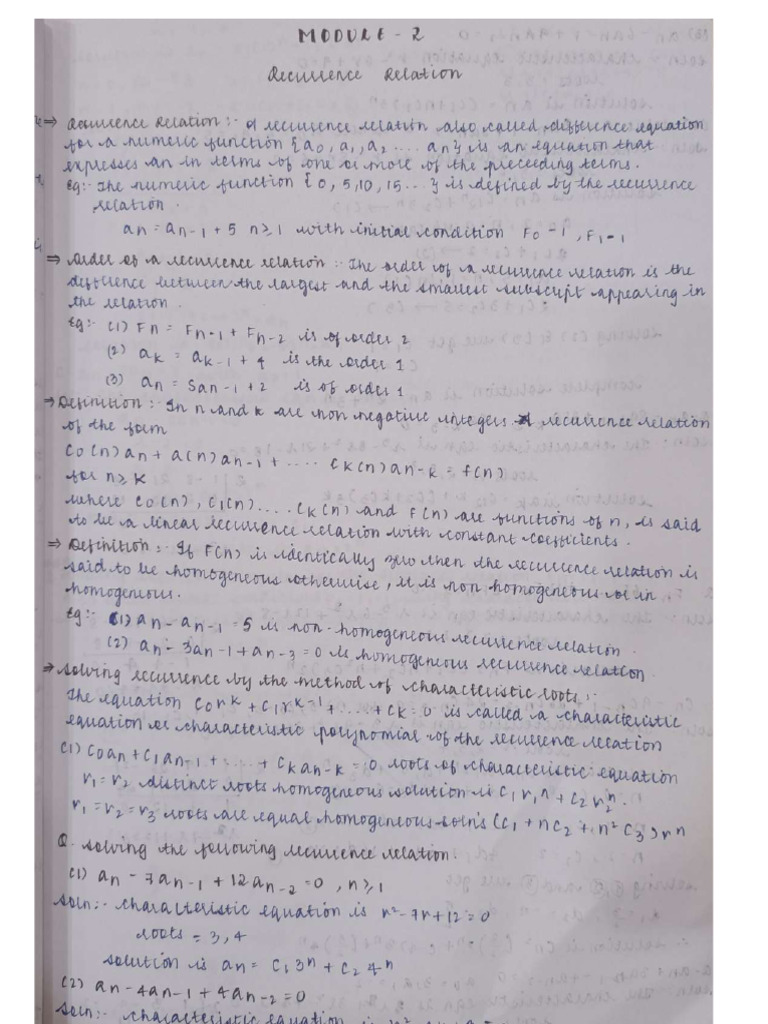 MODULE - 2
Recurrence Relation
⇒ Recurrence Relation :- A recurrence relation also called difference equation
for a numeric function {a0, a1, a2 .... an} is an equation that
expresses an in terms of one or more of the preceding terms.
Eg:- The numeric function {0, 5, 10, 15... } is defined by the recurrence
relation.
an = an-1 + 5 n≥1 with initial condition F0 = 1, F1 = 1
⇒ Order of a recurrence relation :- The order of a recurrence relation is the
difference between the largest and the smallest subscript appearing in
the relation.
Eg:- (1) Fn = Fn-1 + Fn-2 is of order 2
(2) ak = ak-1 + 4 is the order 1
(3) an = 5an-1 + 2 is of order 1
⇒ Definition :- In n and k are non negative integers. A recurrence relation
of the form
C0(n)an + a(n)an-1 + .... Ck(n)an-k = f(n)
for n≥k
where C0(n), C1(n).... Ck(n) and F(n) are functions of n, is said
to be a linear recurrence relation with constant coefficients.
⇒ Definition :- If F(n) is identically zero then the recurrence relation is
said to be homogeneous otherwise, it is non homogeneous or in
homogeneous.
Eg:- (1) an - an-1 = 5 is non-homogeneous recurrence relation.
(2) an - 3an-1 + an-3 = 0 is homogeneous recurrence relation.
⇒ Solving recurrence by the method of characteristic roots :-
The equation C0r^k + C1r^k-1 + .... + Ck = 0 is called a characteristic
equation or characteristic polynomial of the recurrence relation
(1) C0an + C1an-1 + .... + Ckan-k = 0 roots of characteristic equation
r1 = r2 distinct roots homogeneous solution is C1r1^n + C2r2^n.
r1 = r2 = r3 roots are equal homogeneous soln's (C1 + nC2 + n²C3)r^n
Q. Solving the following recurrence relation.
(1) an - 7an-1 + 12an-2 = 0, n≥1
Soln:- characteristic equation is r² - 7r + 12 = 0
roots = 3, 4
solution is an = C1 3^n + C2 4^n
(2) an - 4an-1 + 4an-2 = 0
Soln:- characteristic equation is